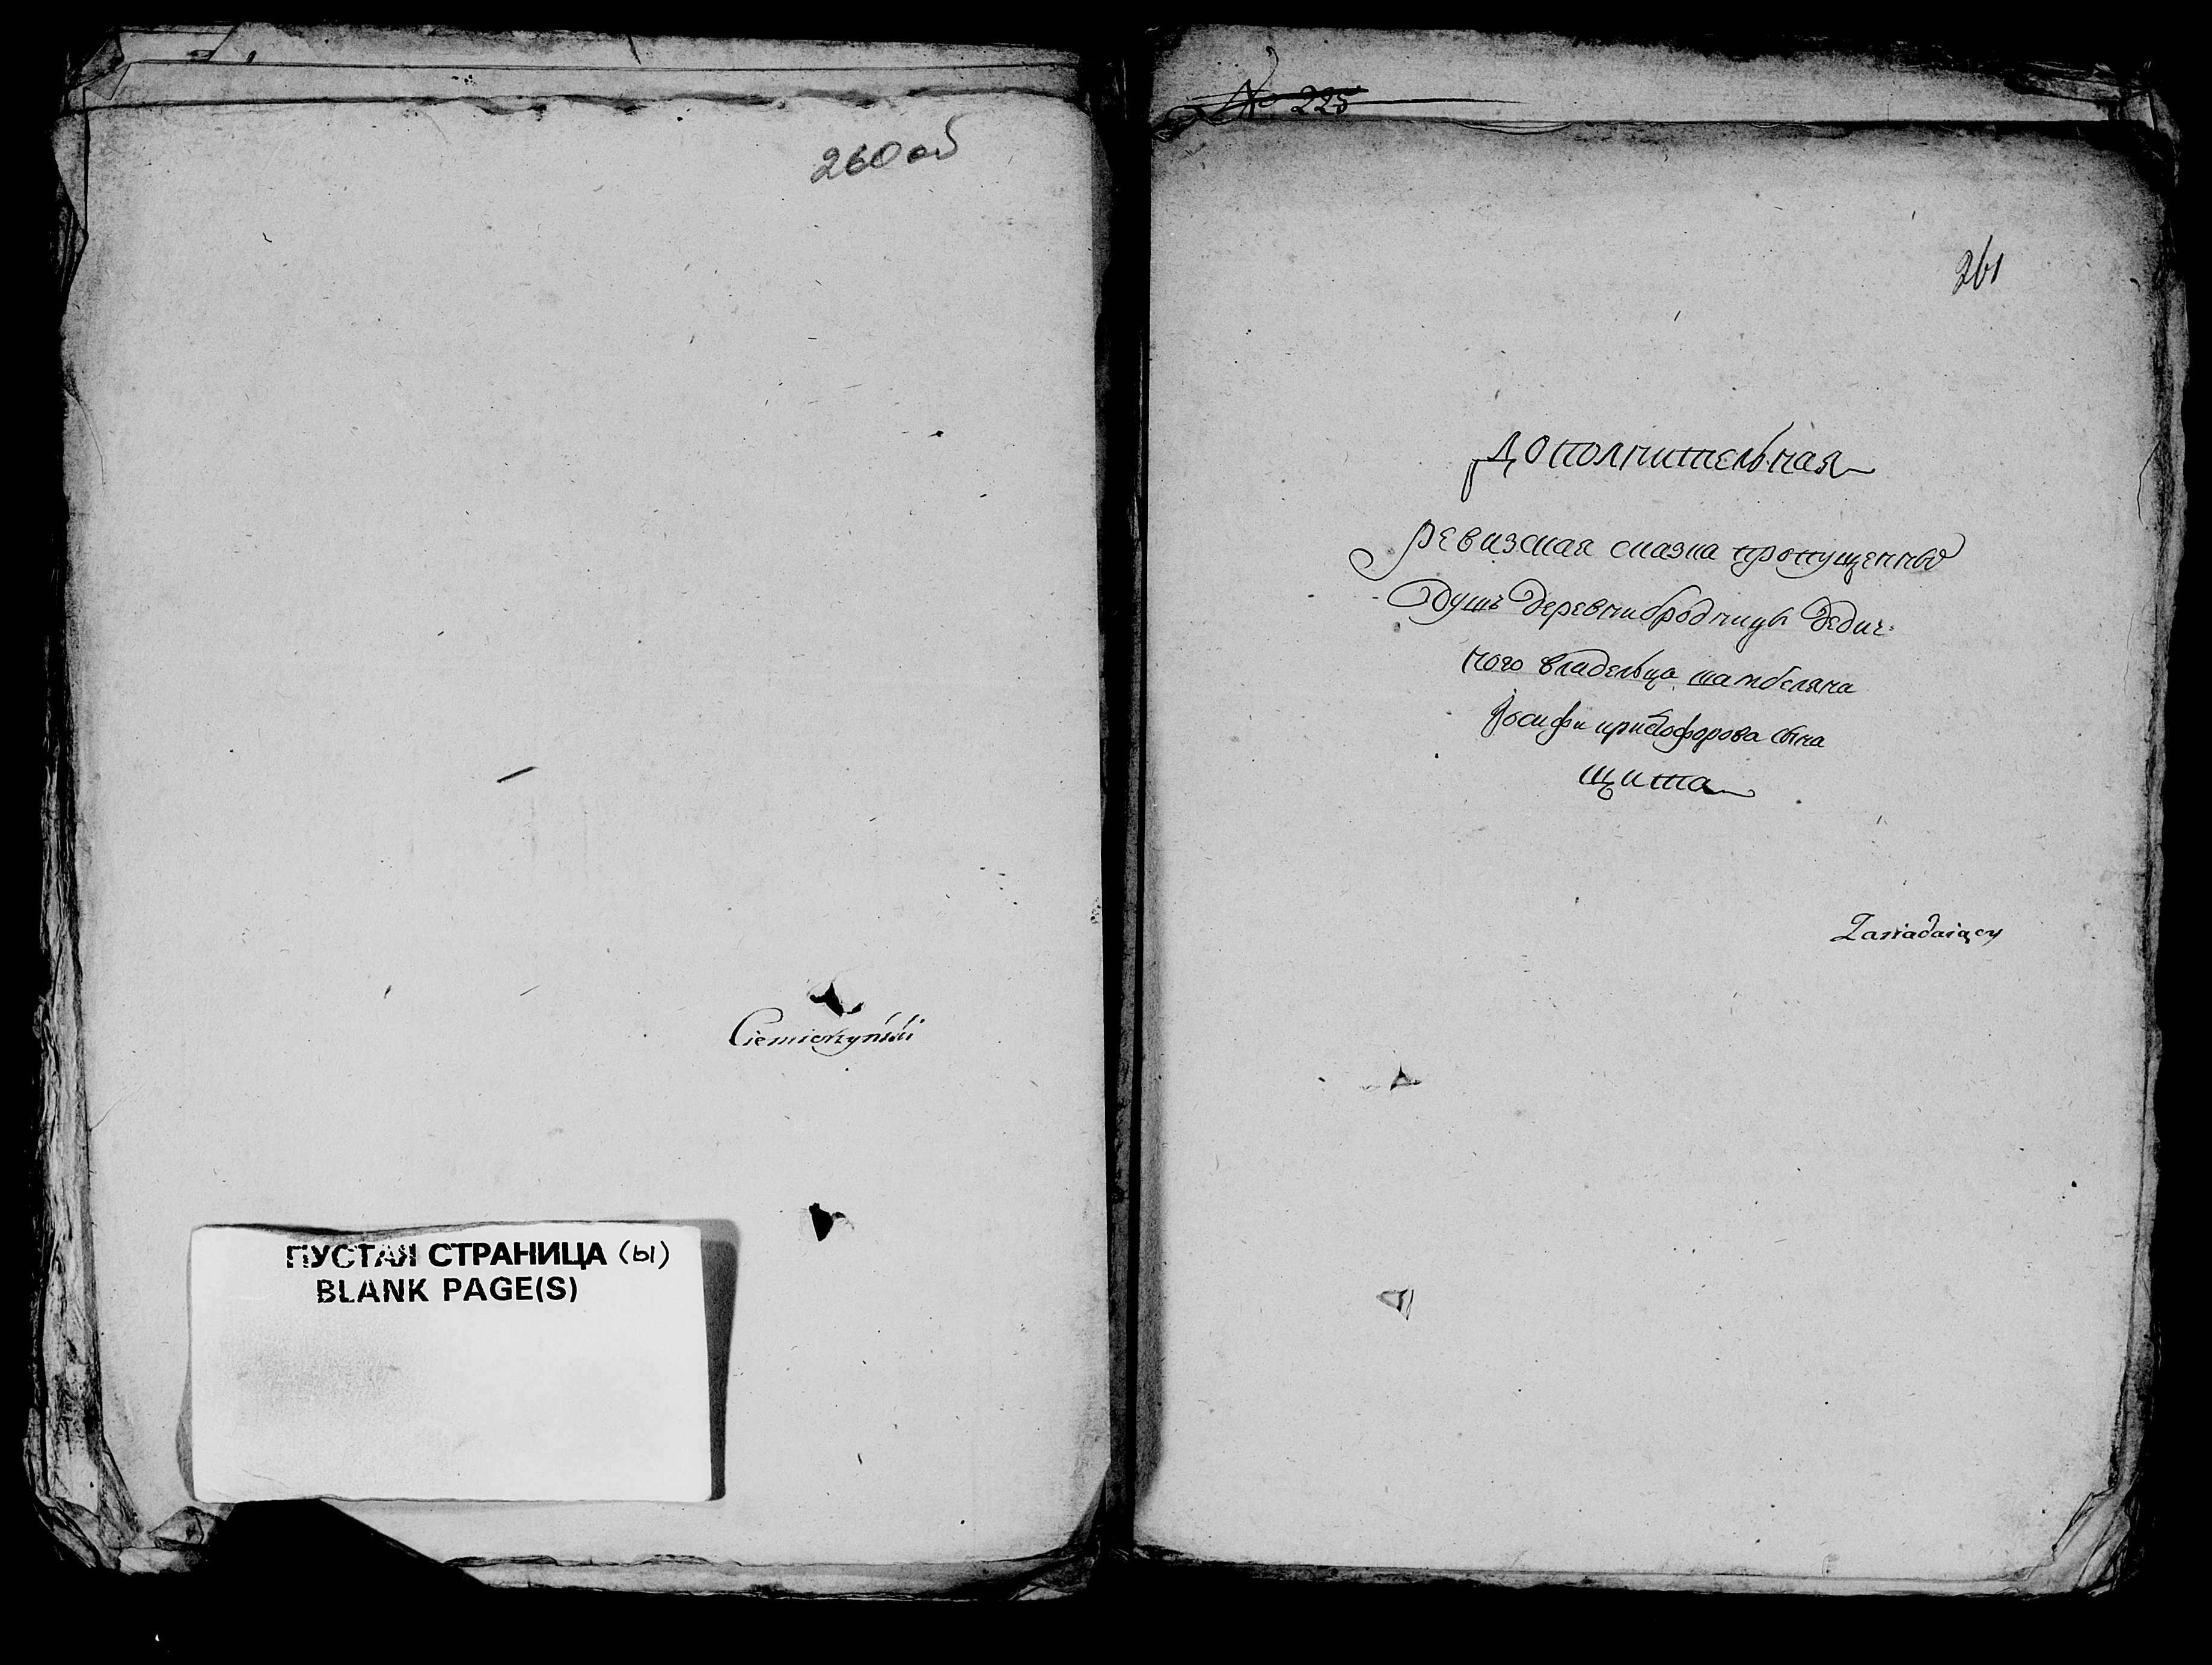 260 об
Ciemierzyński
ПУСТАЯ СТРАНИЦА (ы)
BLANK PAGE(S)
№ 225
261
Дополнительная
ревизская сказка пропущенных
душъ деревни бродницы дедич:
ного владельца шамбеляна
Иосифа криштофорова сына
щита
Zasiadaiący